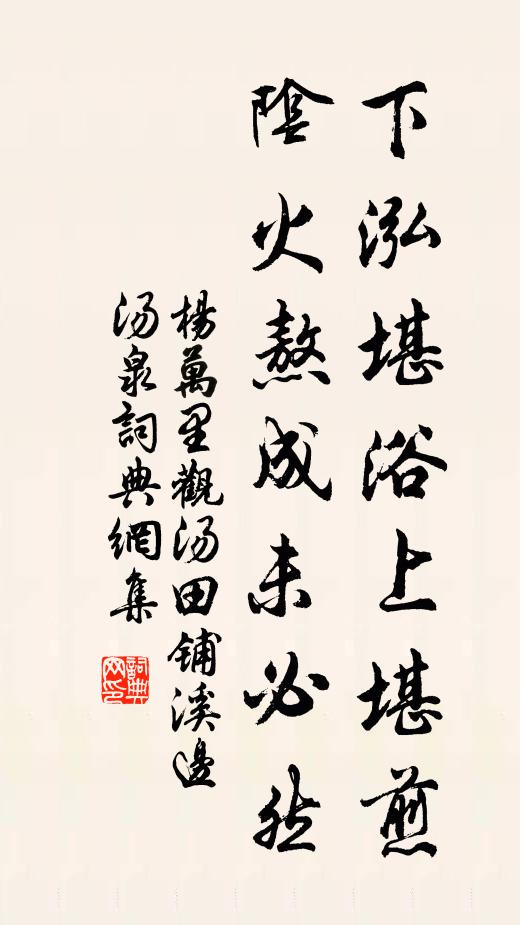 下泓堪浴上堪煎
陰火熬成未必然
楊萬里觀汤田鋪溪邊
汤泉詞典網集
詞典网印